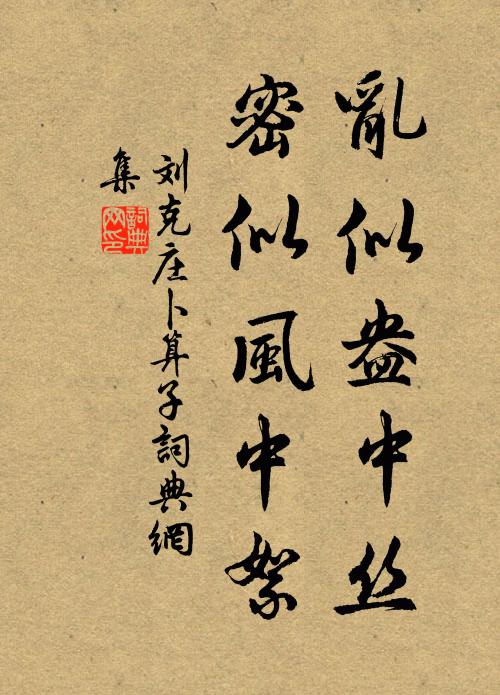 亂似盎中丝
密似風中絮
刘克庄卜算子詞典網
集
詞典网印